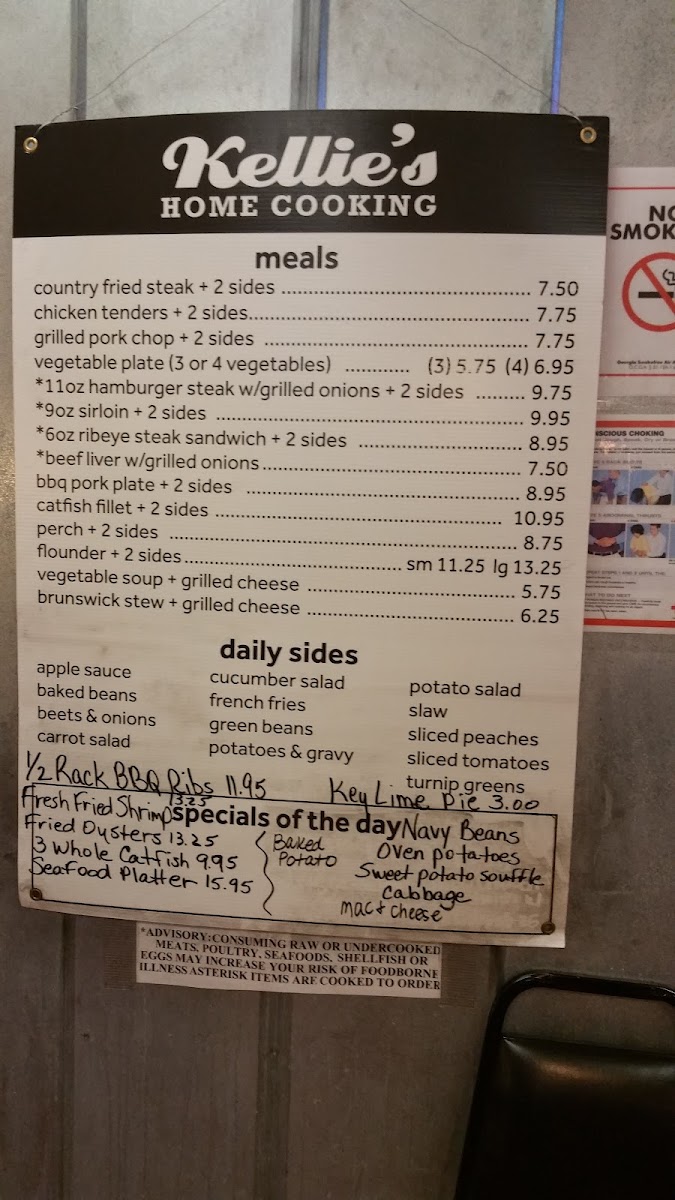 Kellie's
HOME COOKING
meals
country fried steak + 2 sides ........ 7.50
chicken tenders + 2 sides........ 7.75
grilled pork chop + 2 sides ........ 7.75
vegetable plate (3 or 4 vegetables) ........ (3) 5.75 (4) 6.95
*11oz hamburger steak w/grilled onions + 2 sides ........ 9.75
*9oz sirloin + 2 sides ........ 9.95
*6oz ribeye steak sandwich + 2 sides ........ 8.95
*beef liver w/grilled onions ........ 7.50
bbq pork plate + 2 sides ........ 8.95
catfish fillet + 2 sides ........ 10.95
perch + 2 sides ........ 8.75
flounder + 2 sides ........ sm 11.25 lg 13.25
vegetable soup + grilled cheese ........ 5.75
brunswick stew + grilled cheese ........ 6.25
daily sides
apple sauce
baked beans
beets & onions
carrot salad
cucumber salad
french fries
green beans
potatoes & gravy
potato salad
slaw
sliced peaches
sliced tomatoes
turnip greens
1/2 Rack BBQ Ribs 11.95
Key Lime Pie 3.00
specials of the day
Fresh Fried Shrimp 13.25
Fried Oysters 13.25
3 Whole Catfish 9.95
Seafood Platter 15.95
Baked
Potato
Navy Beans
Oven potatoes
Sweet potato souffle
Cabbage
Mac & cheese
*ADVISORY: CONSUMING RAW OR UNDERCOOKED
MEATS, POULTRY, SEAFOODS, SHELLFISH OR
EGGS MAY INCREASE YOUR RISK OF FOODBORNE
ILLNESS ASTERISK ITEMS ARE COOKED TO ORDER
NO
SMOK
Georgia Smokefree Air
SCIOUS CHOKING